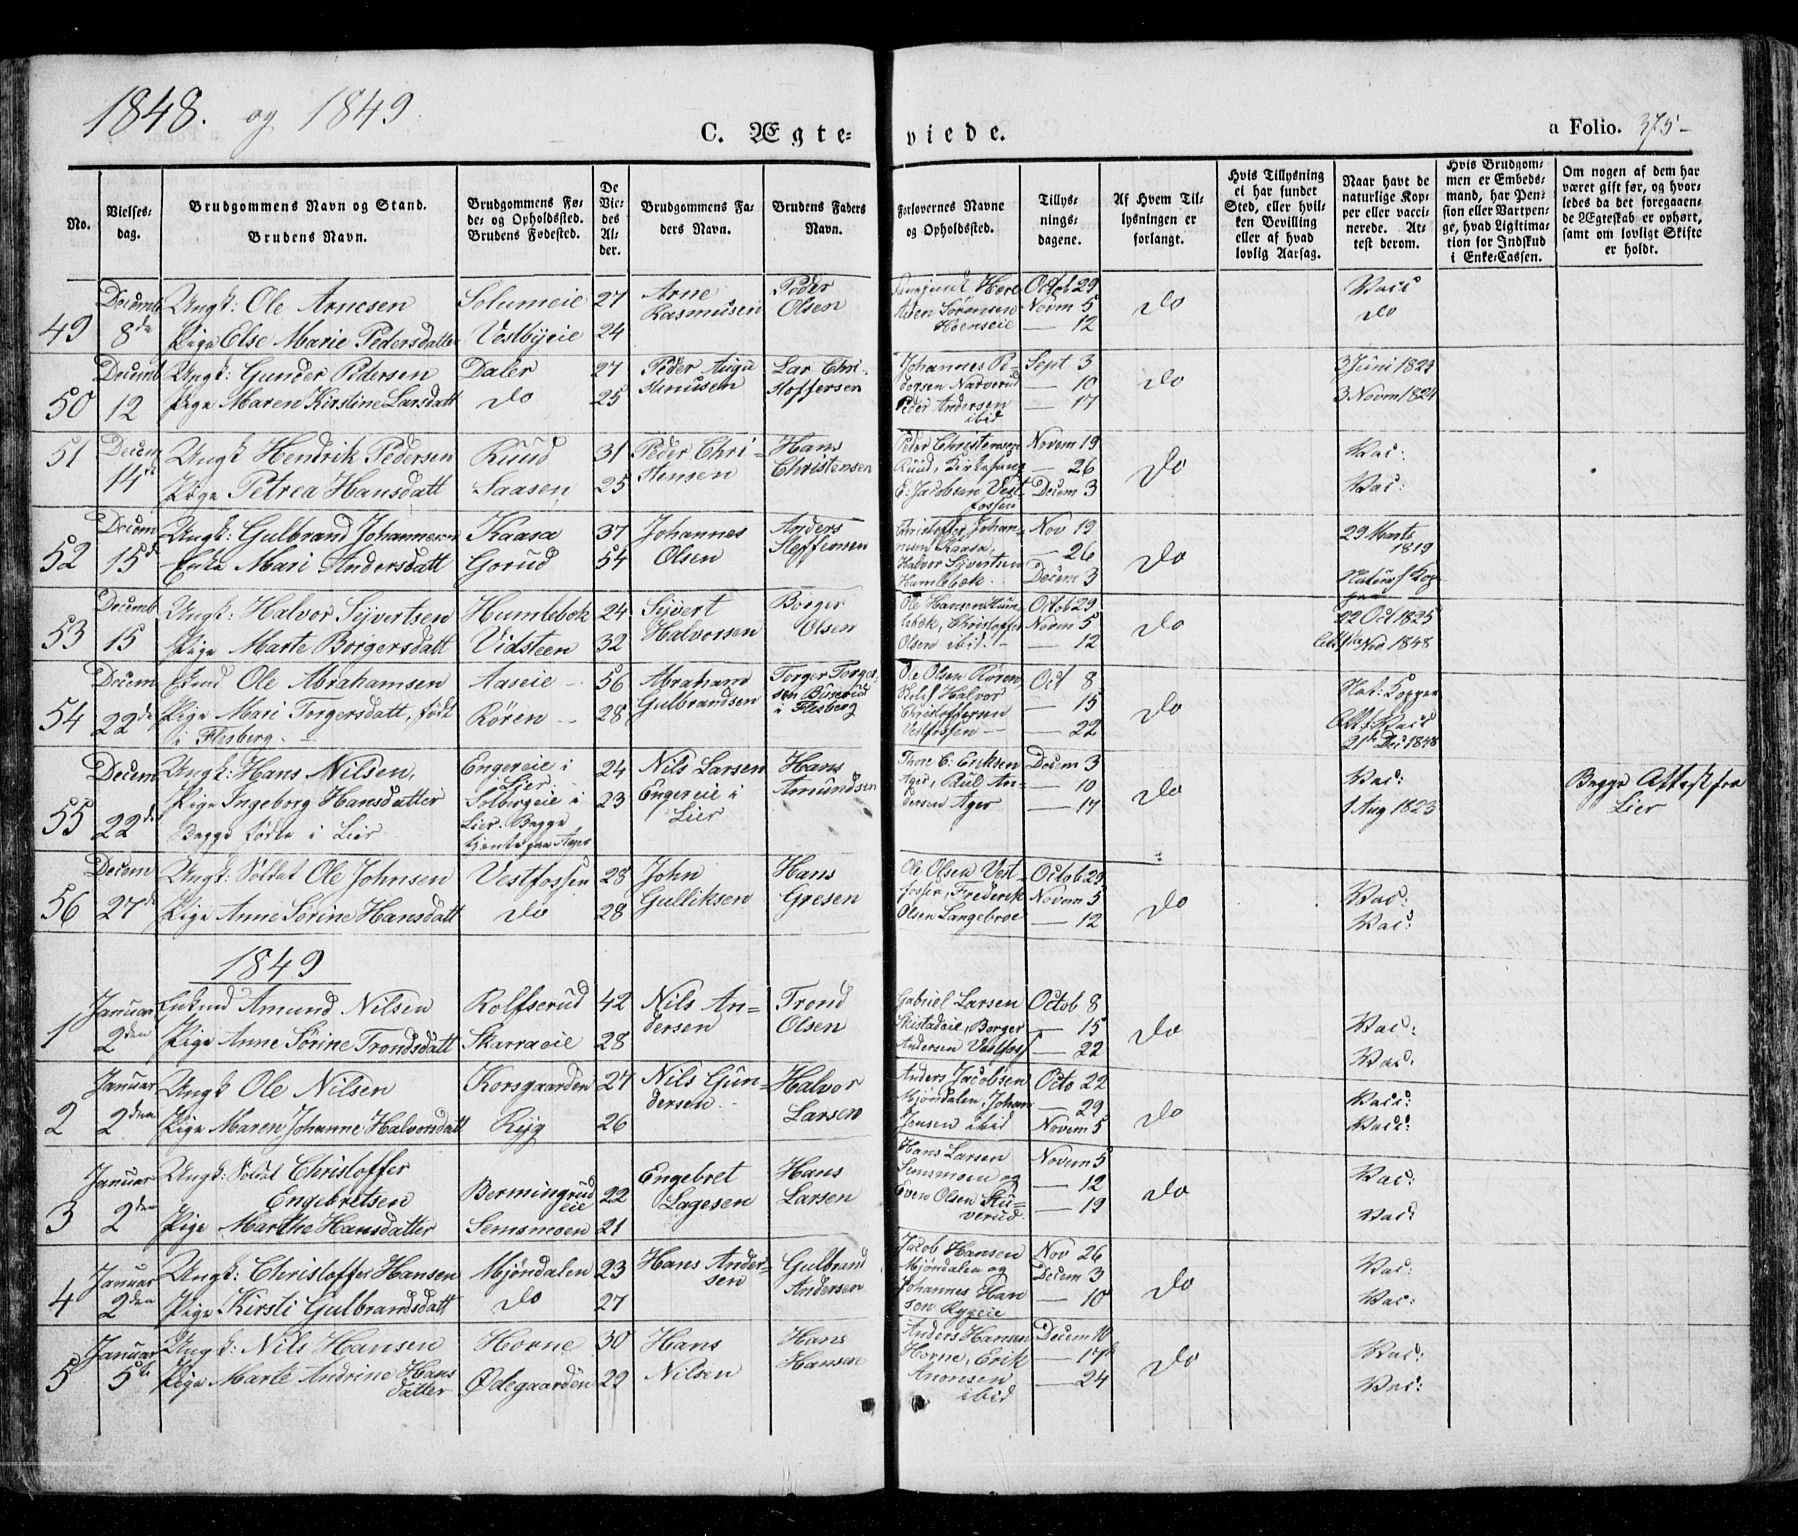 1848. og 1849
C. Ægteviede.
a Folio. 375-
No.
Vielsesdag.
Brudgommens Navn og Stand.
Brudens Navn.
Brudgommens Føde- og Opholdssted.
Brudens Fødested.
De Viedes Alder.
Brudgommens Faders Navn.
Brudens Faders Navn.
Forlovernes Navne og Opholdssted.
Tillysningsdagene.
Af Hvem Tillysningen er forlangt.
Hvis Tillysning ei har fundet Sted, eller hvilken Bevilling eller af hvad lovlig Aarsag.
Naar havt de naturlige Kopper eller vaccinerede. Attest derom.
Hvis Brudgommen er Embedsmand, har Pension eller Vartpenge, hvad Ligitimation for Indskud i Enke-Cassen.
Om nogen af dem har været gift før, og hvorledes da det foregaaende Ægteskab er ophørt, samt om lovligt Skifte er holdt.
49 Decemb 8de
Ungk: Ole Arnesen Solumeie 27 Arne Rasmusen Peder Olsen
Pige Else Marie Pedersdatter Vestbyeie 24
Aslen Sørensen Hoenseie
Octob 29
Novm 5
— 12
Do
Vacc
do
50 Decemb 12
Ungk: Gunder Pedersen Daler 27 Peder Augustinusen Lar Christoffersen
Pige Maren Kirstine Larsdatt do 25
Johannes Pedersen Narverud
Peder Andersen ibid
Sept 3
— 10
— 17
Do
3 Juni 1824
3 Novm 1824
51 Decem 14de
Ungk Hendrik Pedersen Ruud 31 Peder Christensen Hans Christensen
Pige Petrea Hansdatt Saasen 25
Peder Christensen Ruud, Kirkesang
E: Jacobsen Vestfossen
Novem 19
— 26
Decem 3
Do
Vac:
Vac:
52 Decem 15de
Ungk: Gulbrand Johannesen Kaasa 37 Johannes Olsen Anders Steffensen
Enke Mari Andersdatt Gorud 54
Christoffer Johannesen Kaasa,
Halvor Syvertsen Humlebæk
Nov 19
— 26
Decem 3
Do
29 Marts 1819
Naturl Kop
53 Decemb 15
Ungk: Halvor Syvertsen Humlebæk 24 Syvert Halvorsen Borger Olsen
Pige Marte Borgersdatt Vidsteen 32
Ole Hansen Humlebæk, Christoffer Olsen ibid. —
Octob 29
Novm 5
— 12
Do
22 Oct 1825
Nov 1848
54 Decem 22de
Enkmd Ole Abrahamsen Aaseie - 56 Abraham Gulbrandsen Torger Torgersen Buserud i Flesberg
Pige Mari Torgersdatt, født i Flesberg. — Røren - 28
Ole Olsen Røren,
Halvor Christoffersen Vestfossen —
Oct 8
— 15
— 22
Do
Nat: Kopper
Att: Vacc
21de Dec 1848
55 Decem 22de
Ungk: Hans Nilsen, Engereie i Lier 24 Nils Larsen Engereie i Lier Hans Amundsen
Pige Ingeborg Hansdatter Solbergeie i Lier. Begge tjente paa Ager 23
Begge fødte i Lier
Thore E. Eriksen Ager, Poul Andersen Ager
Decem 3
— 10
— 17
Do
Vac:
1 Aug 1823
Begge Attest fra Lier
56 Decem 27de
Ungk: Soldat Ole Johnsen Vestfossen 28 John Gulliksen Hans Gresen
Pige Anne Sørine Hansdatt do 28
Ole Olsen Vestfossen, Frederik Olsen Langebroe
Octob 29
Novem 5
— 12
Do
Vac:
Vac:
1849
1 Januar 2den
Enkmd Amund Nilsen Rolfserud 42 Nils Andersen Trond Olsen
Pige Anne Sørine Trondsdatt Skarraeie 28
Gabriel Larsen Skistadeie, Borger Andersen Vestfoss
Octob 8
— 15
— 22
Do
Vac:
Vac.
2 Januar 2den
Ungk Ole Nilsen Korsgaarden 27 Nils Gundersen Halvor Larsen
Pige Maren Johanne Halvorsdatt Ryg 26
Anders Jacobsen Mjøndalen, Johan Jensen ibid
Octo 22
— 29
Novem 5
Do
Vacc:
Vacc:
3 Januar 2den
Ungk: Soldat Christoffer Engebretsen Bermingrud eie 22 Engebret Lagesen Hans Larsen
Pige Marthe Hansdatter Semsmoen 21
Hans Larsen Semsmoen og Even Olsen Skuverud
Novem 5
— 12
— 19
Do
Vac:
Vac:
4 Januar 2den
Ungk: Christoffer Hansen Mjøndalen 23 Hans Andersen Gulbrand Andersen
Pige Kirsti Gulbrandsdatt do 27
Jacob Hansen Mjøndalen og Johannes Hansen Rygeie
Nov 26
Decem 3
— 10
Do
Vac:
Vac:
5 Januar 5te
Ungk: Nils Hansen Horne 30 Hans Nilsen Hans Hansen
Pige Marte Andrine Hansdatter Ødegaarden 29
Anders Hansen Horne, Erik Aronsen ibid
Decem 10
— 17
— 24
Do
Vac:
Vac: